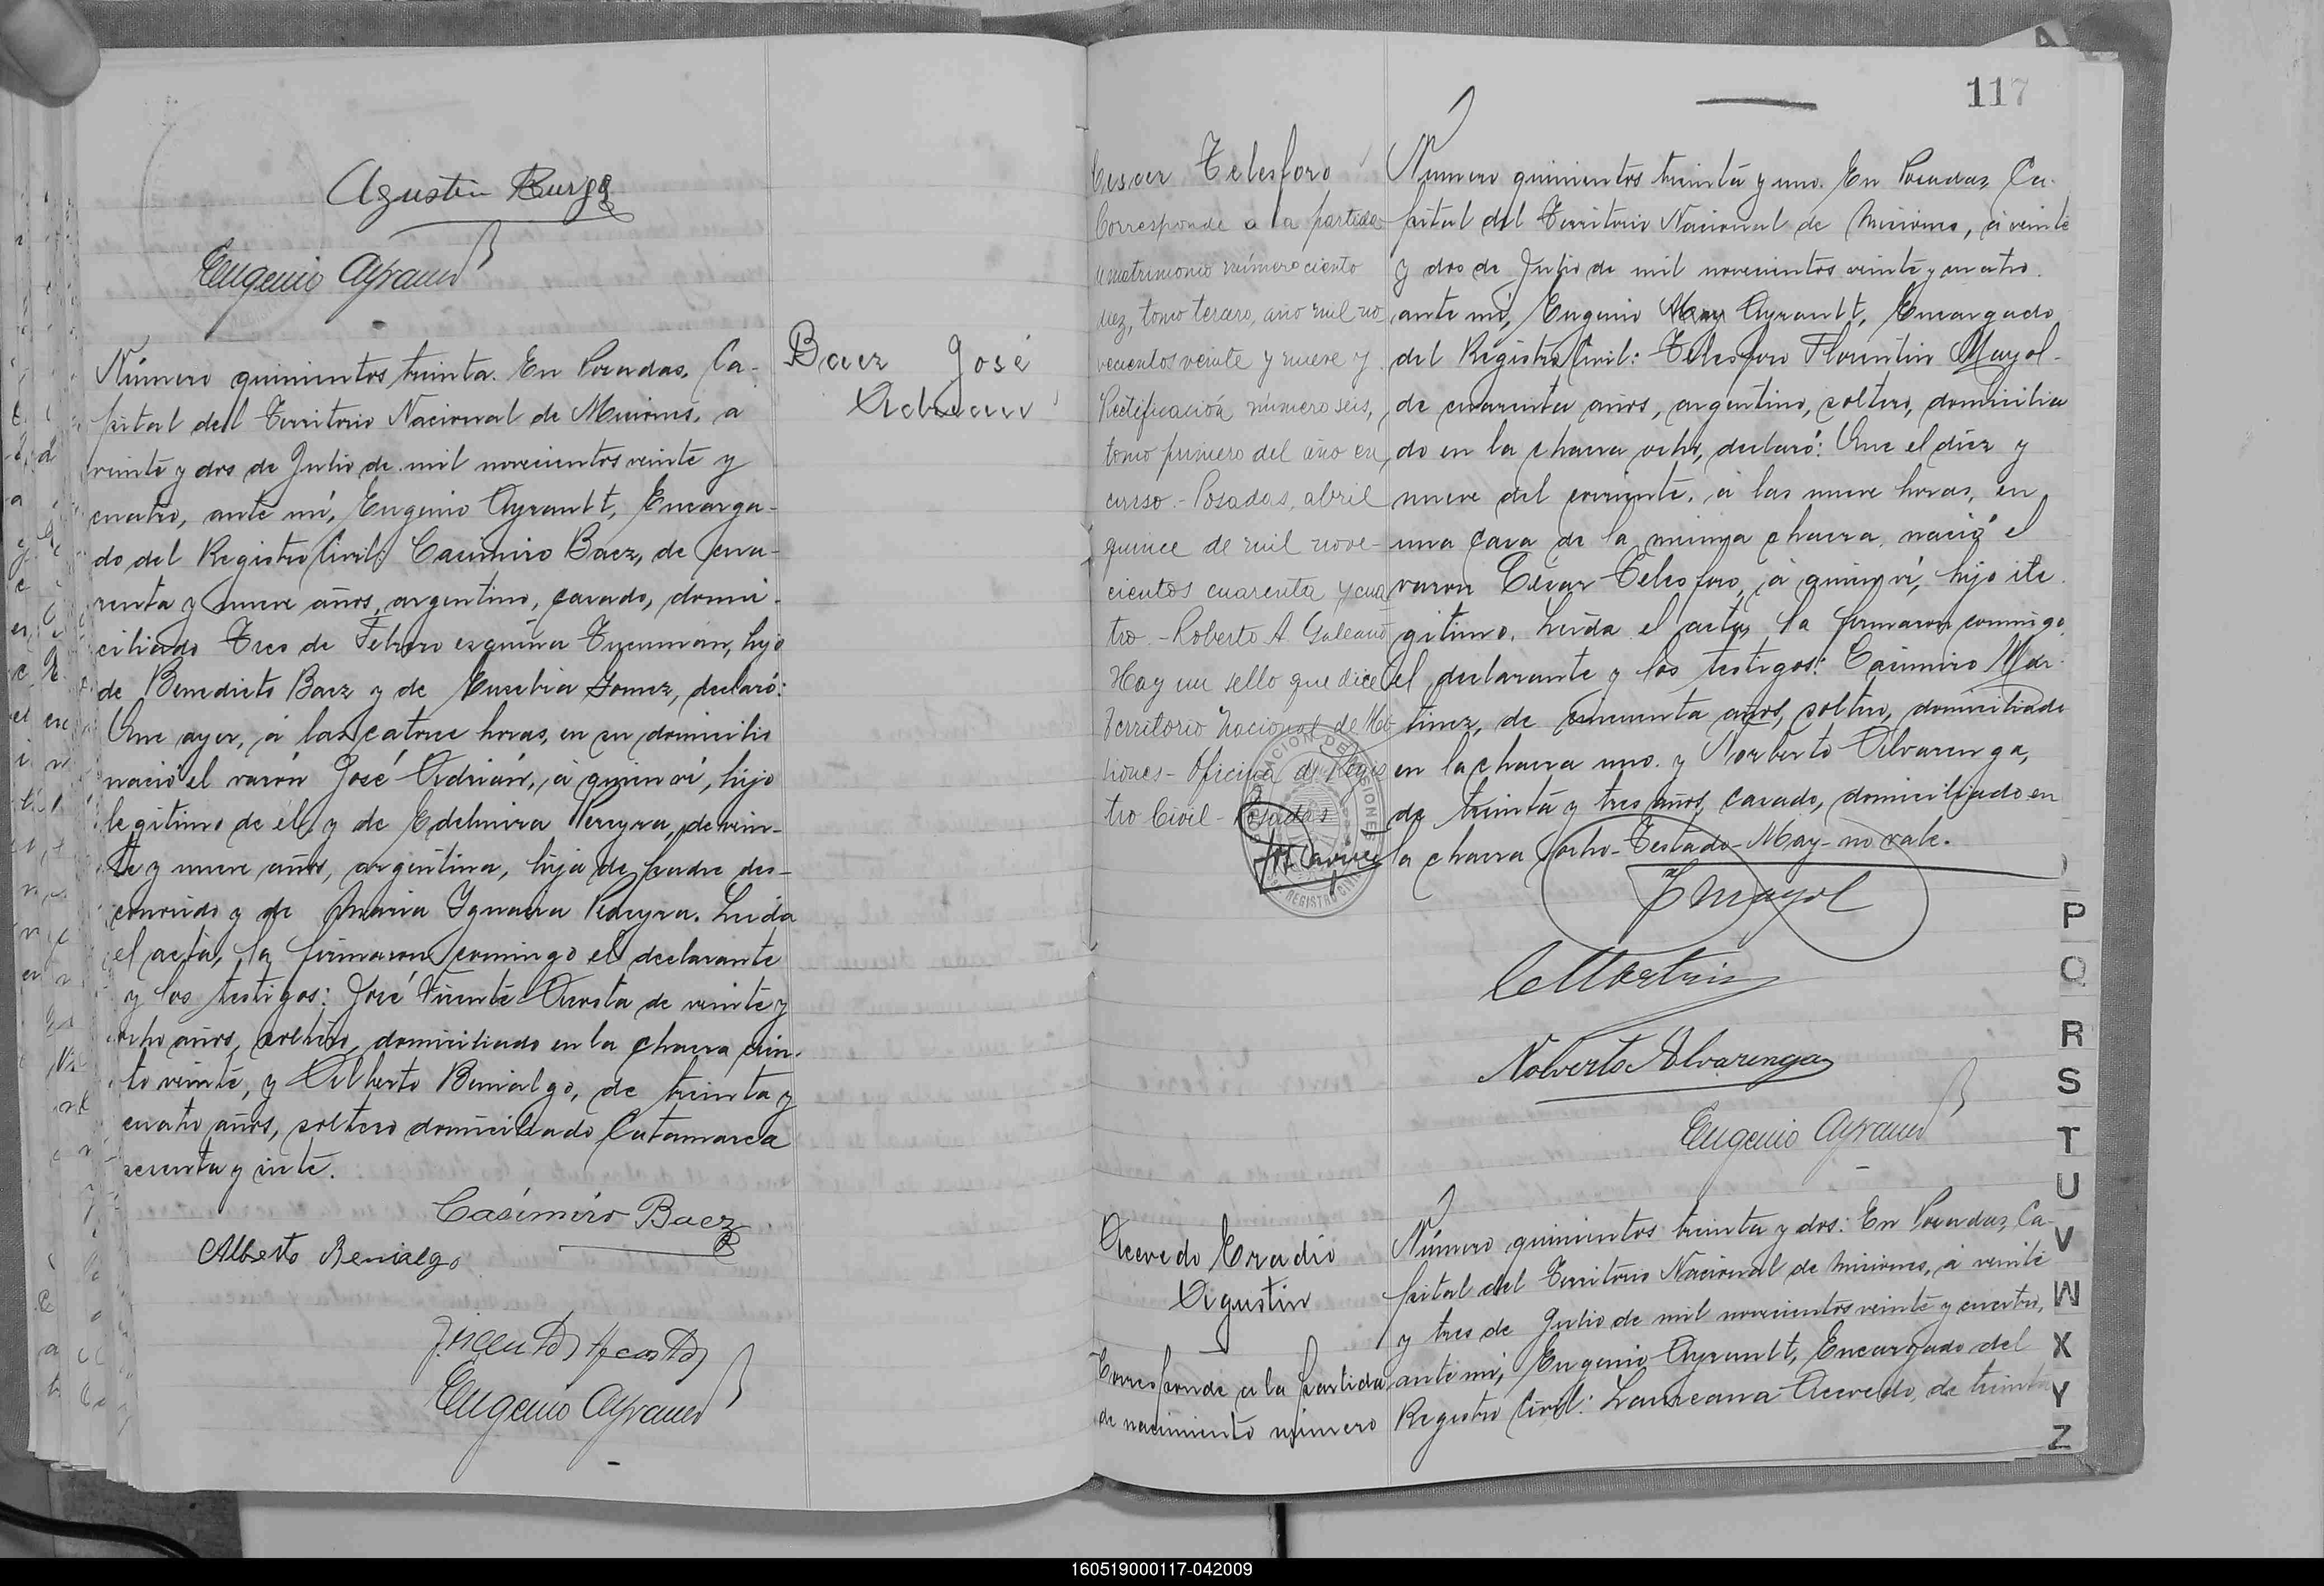 Agustin Burgo
Eugenio Ayrault
Número quinientos treinta. En Posadas, Ca-
pital del Territorio Nacional de Misiones, a
veinte y dos de Julio de mil novecientos veinte y
cuatro, ante mí, Eugenio Ayrault, Encarga-
do del Registro Civil: Casimiro Baez, de cua-
renta y nueve años, argentino, casado, domi-
ciliado Tres de Febrero esquina Tucuman, hijo
de Benedicto Baez y de Eusebia Gomez, declaró:
Que ayer, á las catorce horas, en su domicilio
nació el varón José Adrián, á quien ví, hijo
legítimo de él y de Edelmira Pereyra, de vein-
te y nueve años, argentina, hija de padre des-
conocido y de Maria Ygnacia Pereyra. Leida
el acta, la firmaron conmigo el declarante
y los testigos: José Vicente Acosta de veinte y
ocho años, soltero, domiciliado en la chacra cien-
to veinte, y Alberto Benialgo, de treinta y
cuatro años, soltero domiciliado Catamarca
sesenta y siete.
Casimiro Baez
Alberto Benialgo
Vicente Acosta
Eugenio Ayrault
Baez José
Adrian
117
Cesar Telesforo
Corresponde a la partida
matrimonio número ciento
diez, tomo tercero, año mil no-
vecientos veinte y nueve y
Rectificación número seis,
tomo primero del año en
curso.- Posadas, abril
quince de mil nove-
cientos cuarenta y cua
tro.- Roberto A. Galeano
Hay un sello que dice
Territorio Nacional de Mi-
siones- Oficina de Regis
tro Civil- Posadas
Número quinientos treinta y uno. En Posadas, Ca-
pital del Territorio Nacional de Misiones, á veinte
y dos de Julio de mil novecientos veinte y cuatro.
ante mí, Eugenio May Ayrault, Encargado
del Registro Civil: Telesforo Florentin Mayol-
de cuarenta años, argentino, soltero, domicilia
do en la chacra ocho, declaró: Que el diez y
nueve del corriente, á las nueve horas, en
una casa de la misma chacra, nació el
varon César Telesforo, á quien ví, hijo ile
gítimo. Leida el acta, la firmaron conmigo
el declarante y los testigos: Casimiro Mar-
tinez, de cincuenta años, soltero, domiciliado
en la chacra uno. y Norberto Alvarenga,
de treinta y tres años, casado, domiciliado en
la chacra ocho- Testado- May- no vale.
T Mayol
C Martinez
Nolverto Alvarenga
Eugenio Ayrault
Acevedo Eradio
Agustin
Corresponde a la partida
de nacimiento número
Número quinientos treinta y dos: En Posadas, Ca-
pital del Territorio Nacional de Misiones, á veinte
y tres de Julio de mil novecientos veinte y cuatro,
ante mí, Eugenio Ayrault, Encargado del
Registro Civil: Laureana Acevedo, de treinta
P
Q
R
S
T
U
V
W
X
Y
Z
160519000117-042009